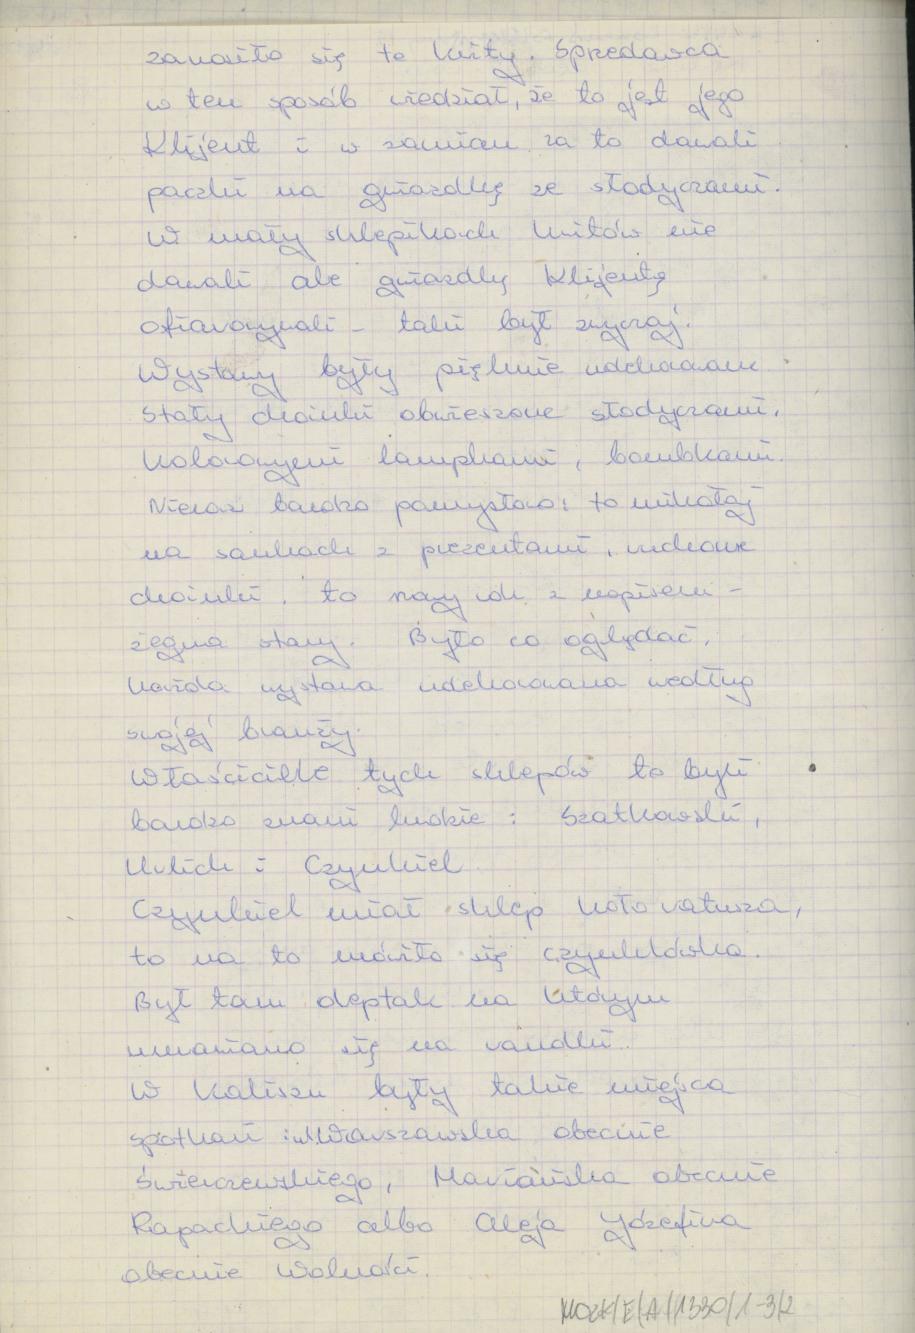 zanosiło się te kwity. Sprzedawca
w ten sposób wiedział, że to jest jego
Klijent i w zamian za to dawali
paczki na gwiazdkę ze słodyczami.
W mały sklepikach kwitów nie
dawali ale gwiazdkę Klijentę
ofiarowywali – taki był zwyczaj.
Wystawy były pięknie udekorowane
Stały choinki obwieszone słodyczami,
kolorowymi lampkami, bombkami.
Nieraz bardzo pomysłowo: to mikołaj
na sankach z prezentami, ruchome
choinki, to nowy rok z napisem –
żegna stary. Było co oglądać,
każda wystawa udekorowana według
swojej branży.
Właściciele tych sklepów to byli
bardzo znani ludzie: Szatkowski,
Ulrich i Czynkiel.
Czynkiel miał sklep koło ratusza,
to na to mówiło się czynklówka.
Był tam deptak na którym
umawiano się na randki.
W Kaliszu były takie miejsca
spotkań: Warszawska obecnie
Świerczewskiego, Mariańska obecnie
Rapackiego albo Aleja Józefina
obecnie Wolności.
MOZK/E/A/1330/1-3/2